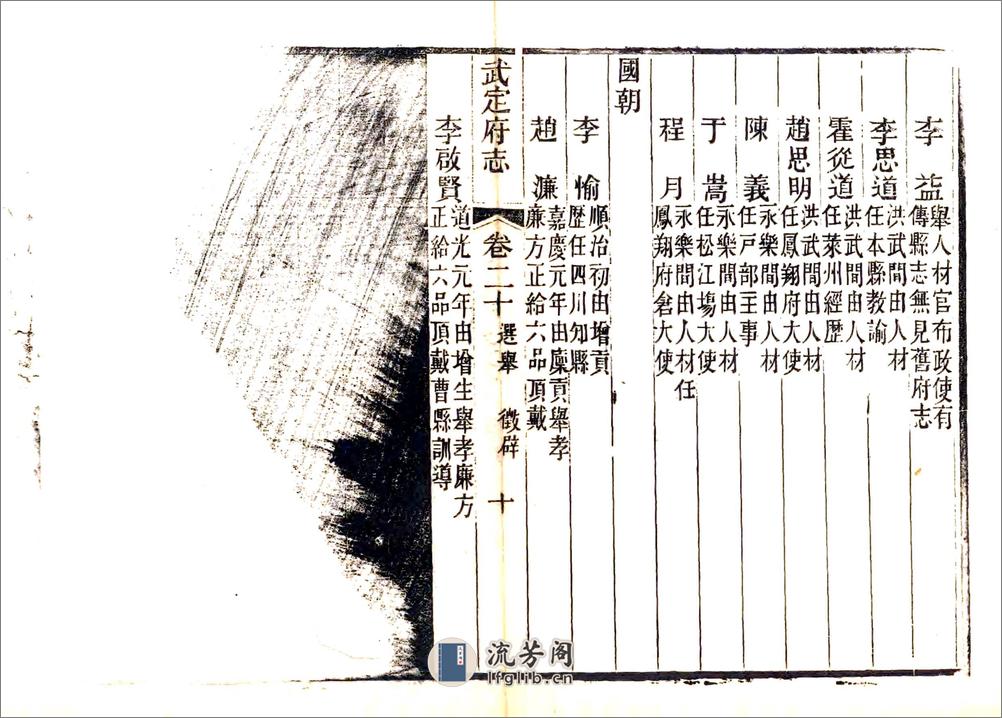 李益 舉人材官布政使有傳縣志無見舊府志
李思道 洪武間由人材任本縣教諭
霍從道 洪武間由人材任萊州經歷
趙思明 洪武間由人材任鳳翔府大使
陳義 永樂間由人材任戸部主事
于嵩 永樂間由人材任松江塲大使
程月 永樂間由人材任鳳翔府倉大使
國朝
李愉 順治初由增貢歷任四川知縣
趙濂 嘉慶元年由廩貢舉孝廉方正給六品頂戴
武定府志 卷二十 選舉 徵辟 十
李啟賢 道光元年由增生舉孝廉方正給六品頂戴曹縣訓導
流芳阁
lfglib.cn